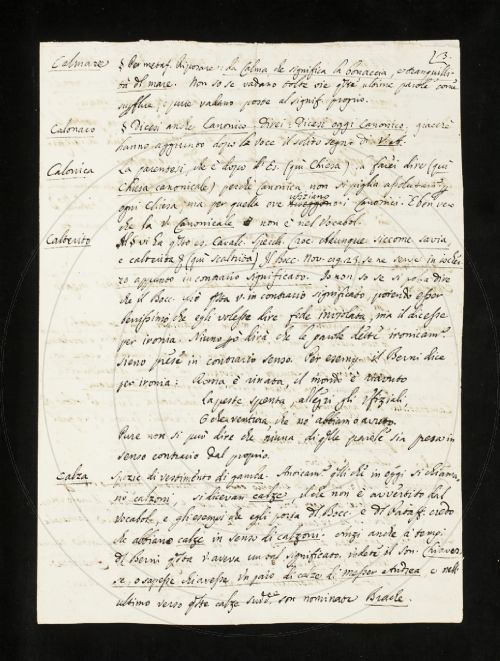 Calmare § Per metaf. Riposare: da Calma che significa la bonaccia, e tranquilli- 13.
tà di mare. Non so se vadano tolte via qste ultime parole come
superflue, e pure vadano poste al signif. proprio.
Calonaco § Dicesi anche Canonico. Direi: Dicesi oggi Canonico, giacchè
hanno aggiunto dopo la voce il solito segno di
Calonica La parentesi che è dopo l' Es. (qui Chiesa), la farei dire (qui
Chiesa canonicale) perchè canonica non si piglia
ogni Chiesa, ma per quella ove ufiziano i Canonici. E
che la v. Canonicale non è nel Vocabol.
Calterito Al § vi ha qsto es. Caval. Specch. Croc. Adunque siccome savia,
e calterita (qui scaltrita) Il Bocc. Nov. se ne servì in
appunto in contrario significato. Io non so se si possa dire
che il Bocc. usò qsta v. in contrario significato, potendo esser
benissimo che egli volesse dire fede inviolata, ma il dicesse
per ironia. Niuno poi dirà che le parole dette ironicam.e
sieno prese in contrario senso. Per esempio il Berni dice
per ironia: Roma è rinata, il mondo è riavuto
La peste spenta, allegri gli Ufiziali
O che ventura che noi abbiamo avuto.
Pure non si può dire che niuna di qste parole sia presa in
senso contrario dal proprio.
Calza Spezie di vestimento di gamba. Anticam.e qlli che in oggi si chiama
no calzoni, si dicevan calze, il che non è avvertito dal
Vocabol. e gli esempi che egli porta del Bocc. e del Pataff. credo
che abbiano calze in senso di calzoni. Anzi anche a tempi
del Berni qsta v. aveva un tal significato, vedete il Son. Chi avesse
se, o sapesse chi avesse un paio di calze di messer Andrea, e nell'
ultimo verso qste calze sudd.e son nominate Brache.